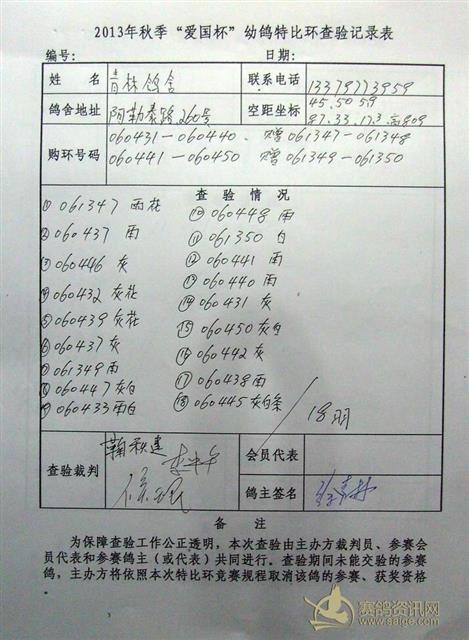 2013年秋季“爱国杯”幼鸽特比环查验记录表
编号： 日期：
姓名 青林鸽舍 联系电话 13379773959
鸽舍地址 阿勒泰路260号 空距坐标 45.50 59
87.33.17.3 高809
购环号码 060431—060440、赠061347—061348
060441—060450 赠061349—061350
查验情况
① 061347 雨花
② 060437 雨
③ 060446 灰
④ 060432 灰花
⑤ 060439 灰花
⑥ 060437 灰
⑦ 061349 雨
⑧ 060447 灰白
⑨ 060433 雨白
⑩ 060448 雨
⑪ 061350 白
⑫ 060441 雨
⑬ 060440 雨
⑭ 060431 灰
⑮ 060450 灰白
⑯ 060442 灰
⑰ 060438 雨
⑱ 060445 灰白条
18羽
查验裁判 会员代表
鸽主签名
备注
为保障查验工作公正透明，本次查验由主办方裁判员、参赛会
员代表和参赛鸽主（或代表）共同进行。查验期间未能交验的参赛
鸽，主办方将依照本次特比环竞赛规程取消该鸽的参赛、获奖资格
赛鸽资讯网
www.saige.com